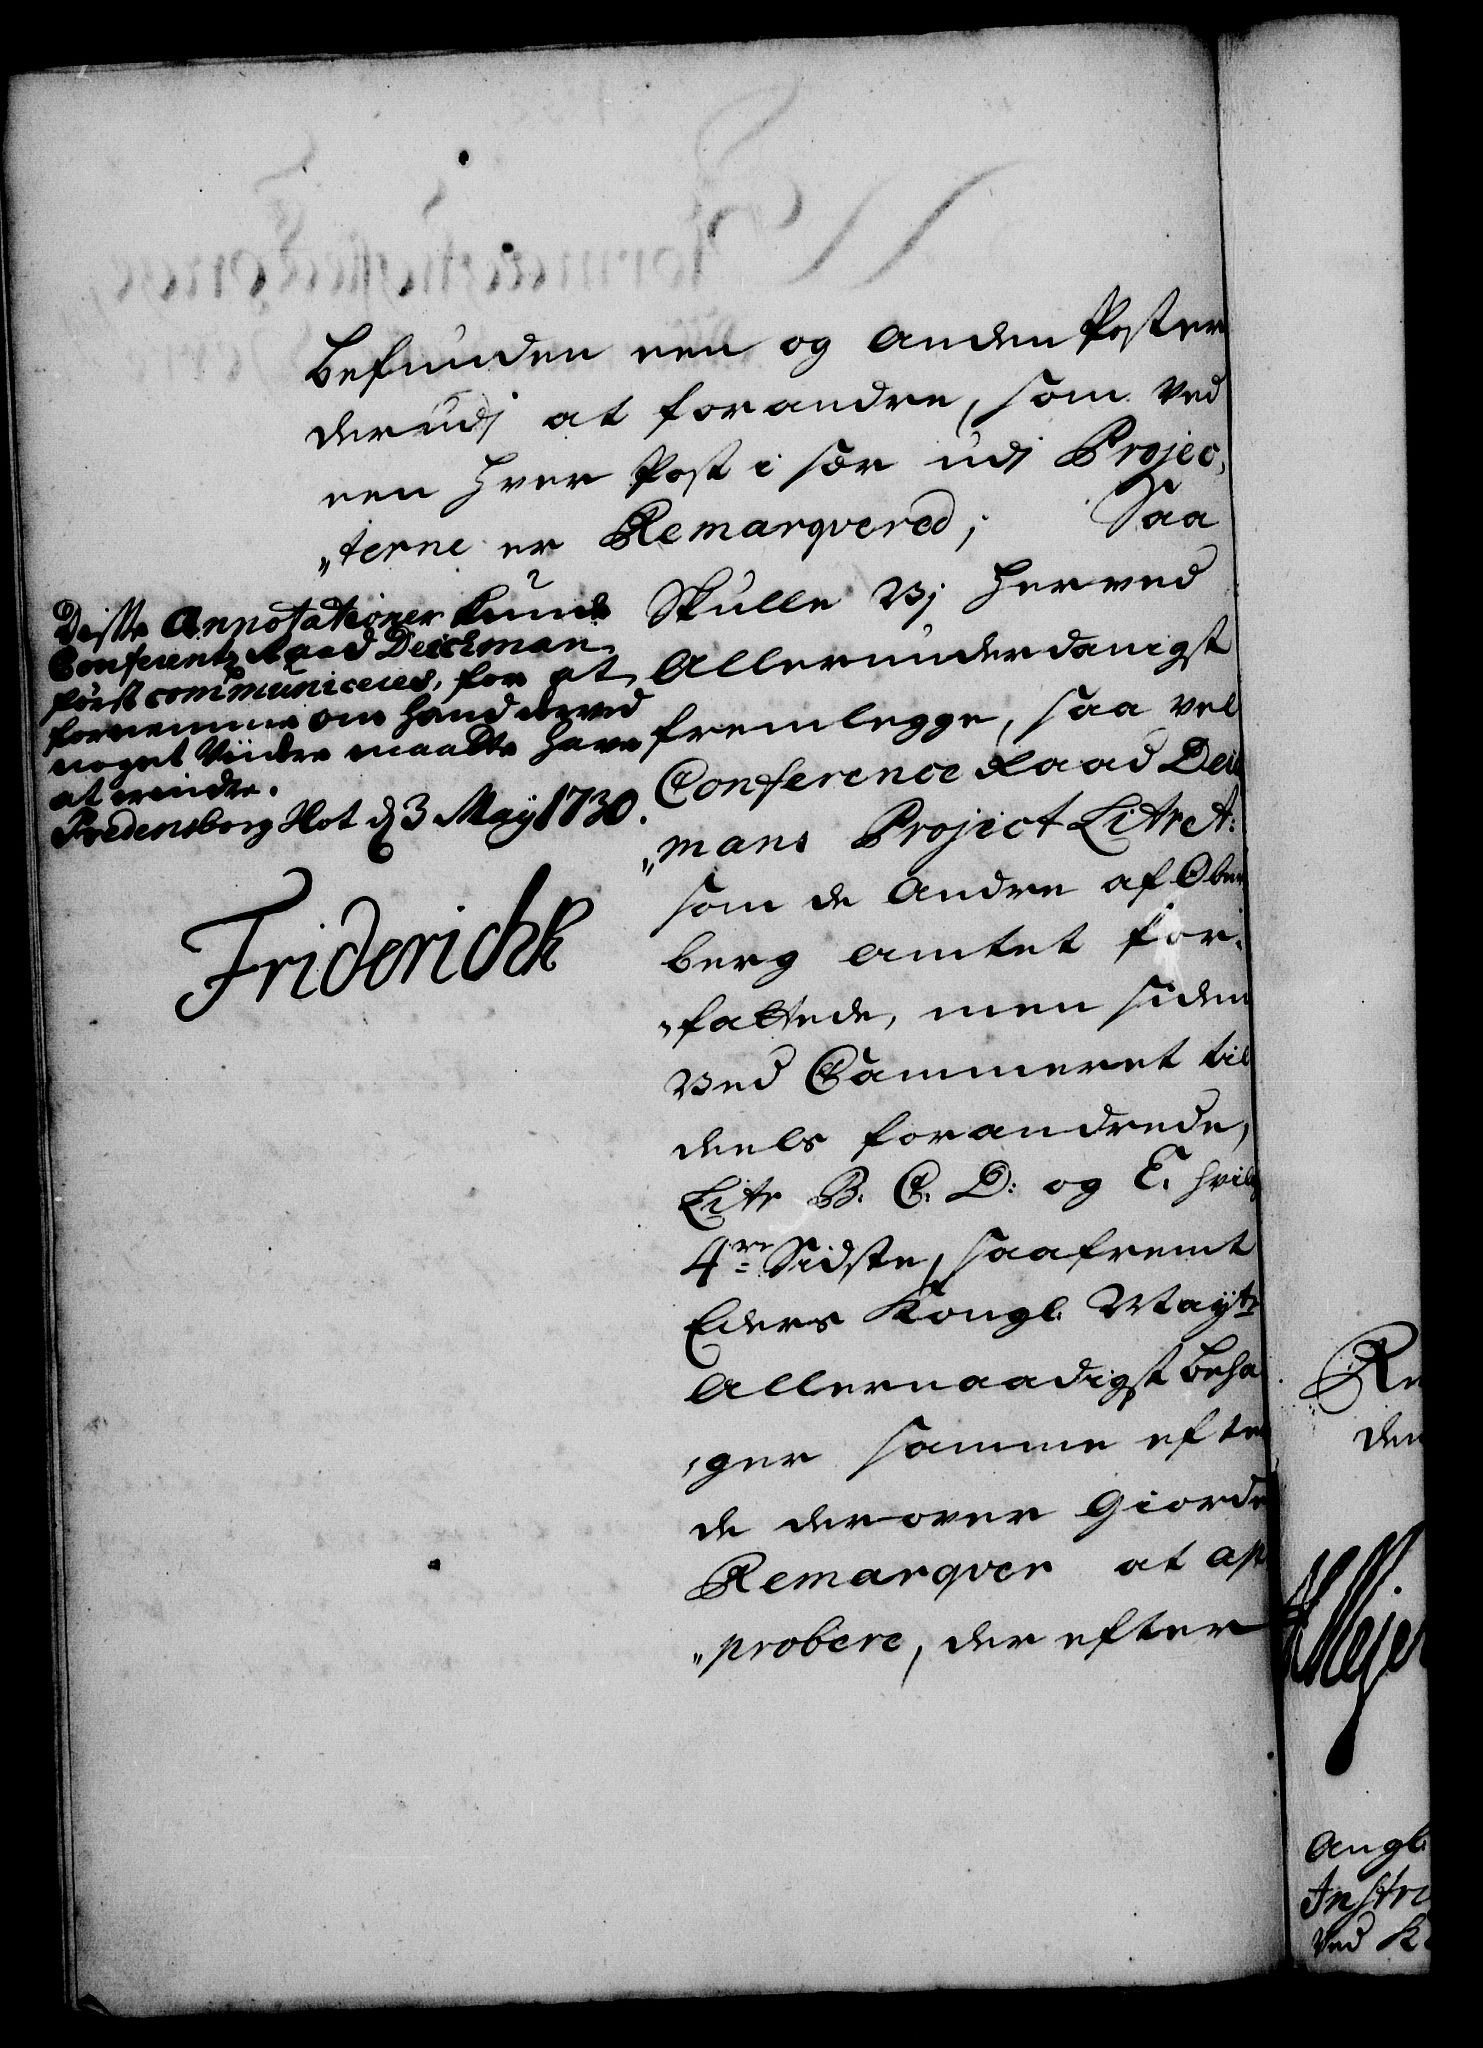 befunden een og anden Poster
derudj at forandre, som ved
een hver Post i sær udj Projec,
„terne er Remarqvered; Saa
Skulle vj herved
allerunderdanigst
fremlegge, saa vel
Conference Raad Deic
„mans Project Litr A:
som de andre af Ober
berg amtet for„
„fattede, men siden
ved Cammeret til
deels forandrede,
Litr B. C. D: og E. hvilc
4re Sidste, saafremt
Eders Kongl. Mayts
allernaadigst beha
„ger samme efter
de derover giorde
Remarqver at ap
„probere, der efter
Disse Annotationer kunde
Conferentz Raad Deichman
først communiceres, for at
fornemme om hand derved
noget videre maatte have
at erindre.
Fredensborg Slot d 3 May 1730.
Friderich R
Re
den
Meje
angl.
Instru
ved K